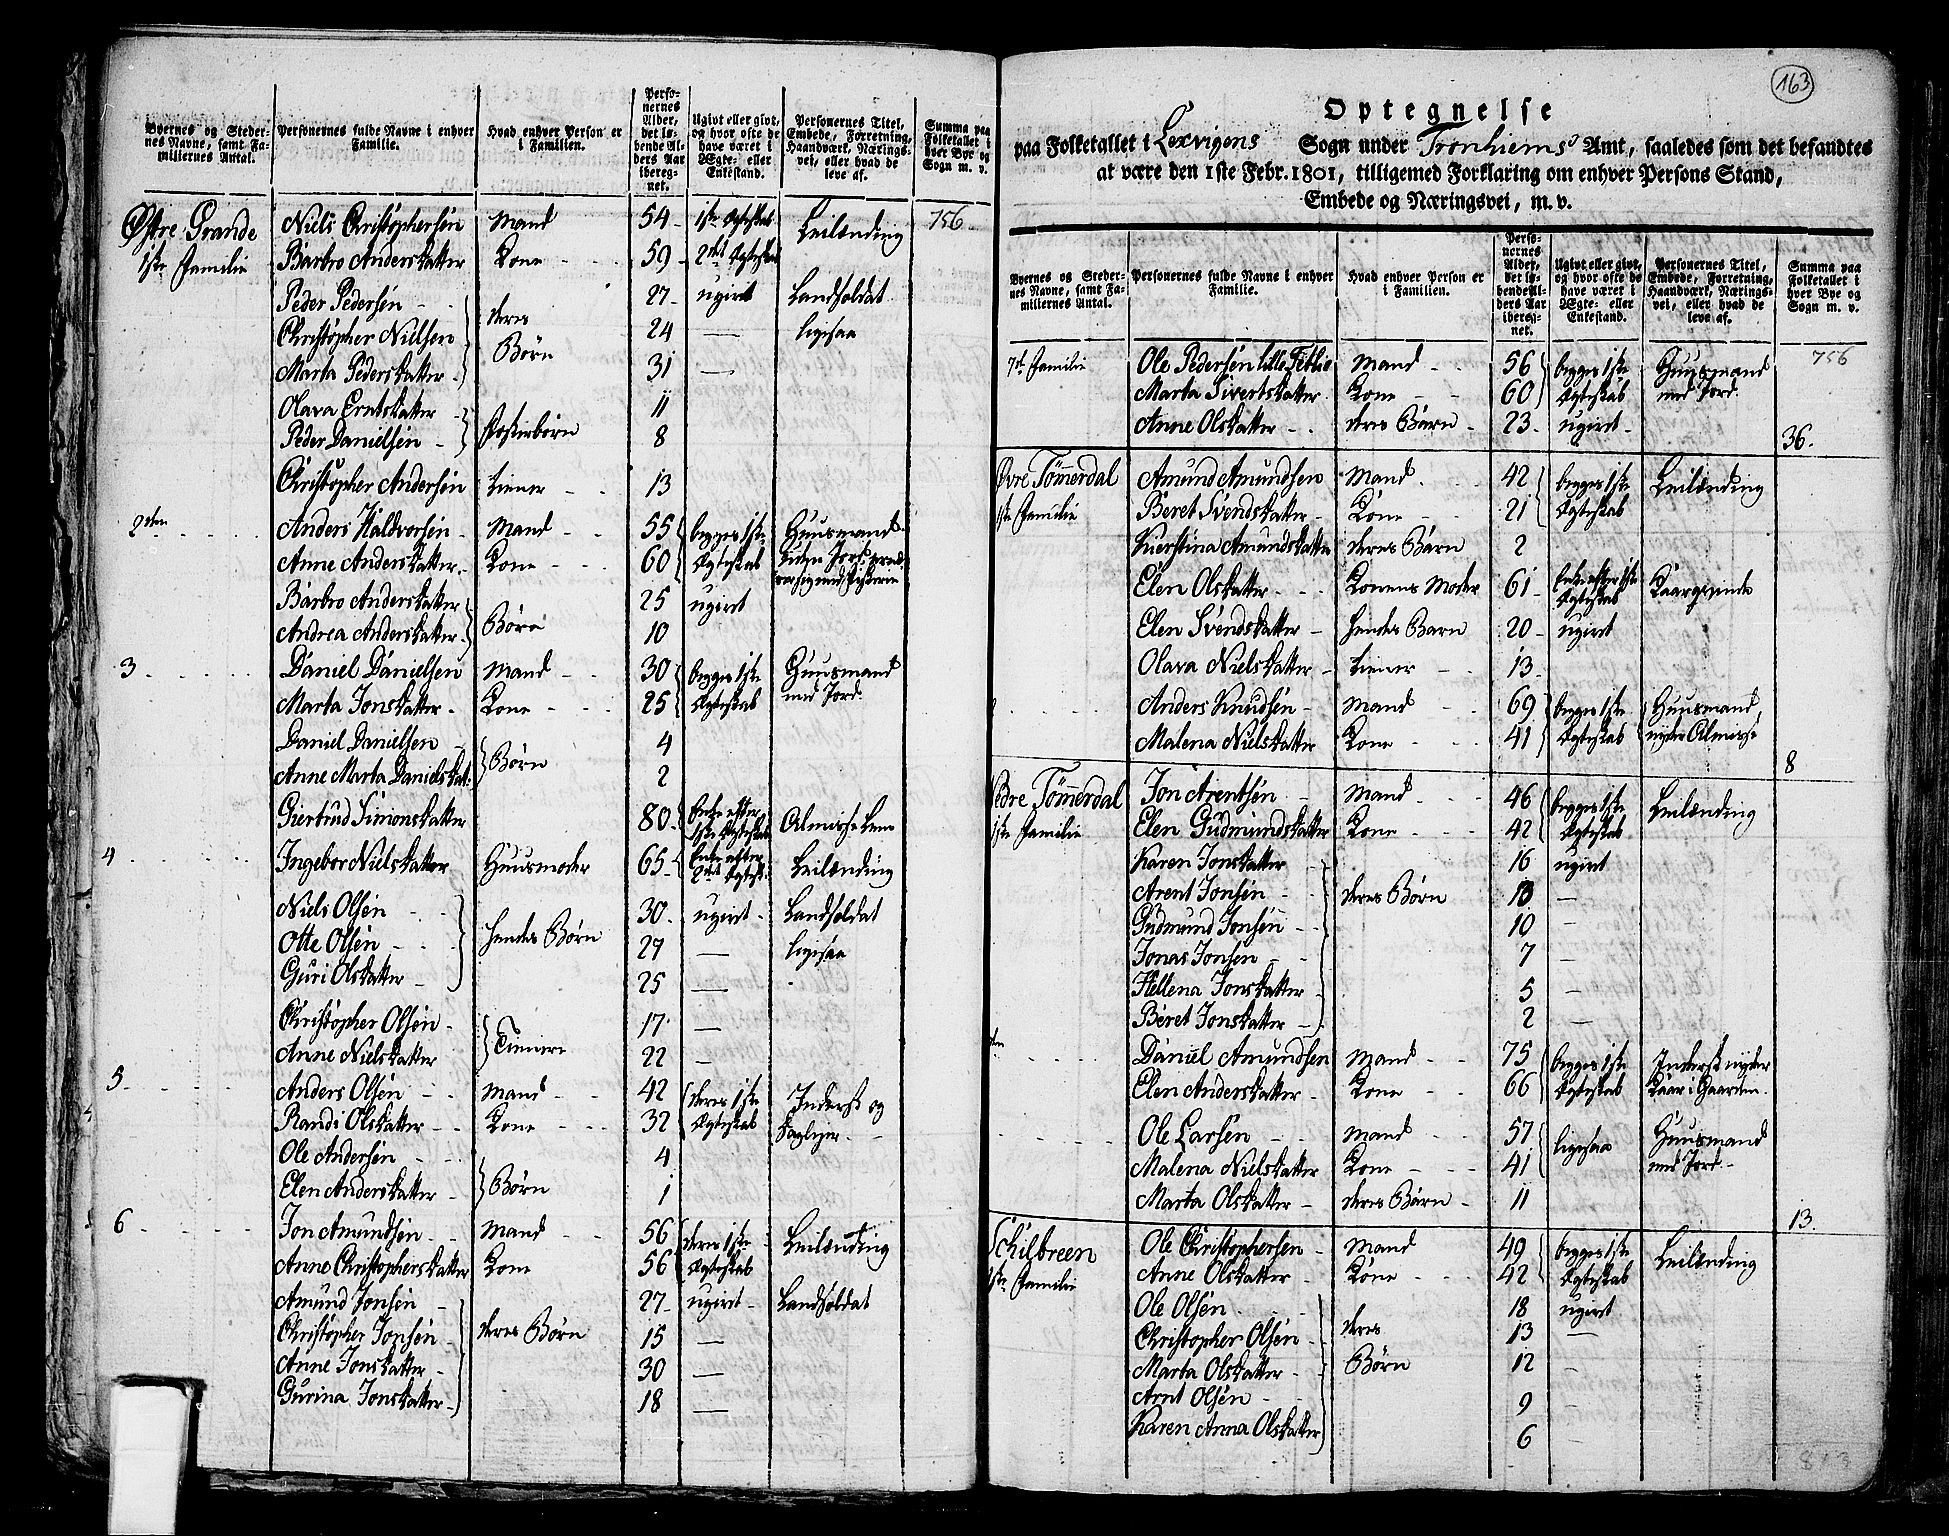 Byernes og Steder-
nes Navne, samt Fa-
miliernes Antal.
Personernes fulde Navne i enhver
Familie.
Hvad enhver Person er
i Familien.
Perso-
nernes
Alder,
det lø-
bende Al-
ders Aar
ibereg-
net.
Ugivt eller givt,
og hvor ofte de
have været i
Ægte- eller
Enkestand.
Personernes Titel,
Embede, Forretning,
Haandværk, Nærings-
vei, eller hvad de
leve af.
Summa paa
Folketallet i
hver Bye og
Sogn m. v.
Østre Grande Niels Christophersen Mand 54 1ste Ægteskab Leilænding 756
1ste Familie Barbro Andersdatter Kone 59 2det Ægteskab
Peder Pedersen 27 ugivt Landsoldat
Christopher Nielsen deres Børn 24 — ligesaa
Marta Pedersdatter 31 —
Olava Erntsdatter 11
Peder Danielsen Fosterbørn 8
Christopher Andersen tiener 13
2den Anders Haldvorsen Mand 55 begge 1ste Huusmand
Anne Andersdatter Kone 60 Ægteskab uden Jord
Barbro Andersdatter 25 ugivt
Andrea Andersdatter Børn 10
3 Daniel Danielsen Mand 30 begge 1ste Huusmand
Marta Jonsdatter Kone 25 Ægteskab med Jord
Daniel Danielsen 4
Anne Marta Danielsdat: Børn 2
Giertrud Simonsdatter 80 Enke efter 1ste Ægteskab Almisse Lem
4 Ingebor Nielsdatter Huusmoder 65 Enke efter 2det Ægtesk: Leilænding
Niels Olsen 30 ugivt Landsoldat
Otte Olsen hendes Børn 27 — ligesaa
Guri Olsdatter 25 —
Christopher Olsen 17 —
Anne Nielsdatter Tienere 22 —
5 Anders Olsen Mand 42 deres 1ste Inderst og
Randi Olsdatter Kone 32 Ægteskab
Ole Andersen 4
Elen Andersdatter Børn 1
6 Jon Amundsen Mand 56 deres 1ste Leilænding
Anne Christophersdatter Kone 56 Ægteskab
Amund Jonsen 27 ugivt Landsoldat
Christopher Jonsen deres Børn 15 —
Anne Jonsdatter 30 —
Gurina Jonsdatter 18 —
163
Optegnelse
paa Folketallet i Lexvigens Sogn under Tronhiems Amt, saaledes som det befandtes
at være den 1ste Febr. 1801, tilligemed Forklaring om enhver Persons Stand,
Embede og Næringsvei, m. v.
Byernes og Steder-
nes Navne, samt Fa-
miliernes Antal.
Personernes fulde Navne i enhver
Familie.
Hvad enhver Person er
i Familien.
Perso-
nernes
Alder,
det lø-
bende Al-
ders Aar
ibereg-
net.
Ugivt eller givt,
og hvor ofte de
have været i
Ægte- eller
Enkestand.
Personernes Titel,
Embede, Forretning,
Haandværk, Nærings-
vei, eller hvad de
leve af.
Summa paa
Folketallet i
hver Bye og
Sogn m. v.
7de Familie Ole Pedersen Mand 56 begge 1ste Huusmand 756
Marta Sivertsdatter Kone 60 Ægteskab med Jord
Anne Olsdatter deres Barn 23 ugivt 36
Øvre Tømmerdal Amund Amundsen Mand 42 begge 1ste Leilænding
1ste Familie Beret Svendsdatter Kone 21 Ægteskab
Kierstina Amundsdatter deres Barn 2
Elen Olsdatter Konens Moder 61 Enke efter 1ste Ægteskab
Elen Svendsdatter hendes Barn 20 ugivt
Olava Nielsdatter tiener 13
Anders Knudsen Mand 69 begge 1ste Huusmand
Malena Nielsdatter Kone 41 Ægteskab nyder Almisse
8
Nedre Tømmerdal Jon Arentsen Mand 46 begge 1ste Leilænding
1ste Familie Elen Gudmundsdatter Kone 42 Ægteskab
Karen Jonsdatter 16 ugivt
Arent Jonsen deres Børn 13 —
Gudmund Jonsen 10 —
Jonas Jonsen 7 —
Hellena Jonsdatter 5 —
Beret Jonsdatter 2 —
Daniel Amundsen Mand 75 begge 1ste Inderst nyder
Elen Andersdatter Kone 66 Ægteskab Kaar i Gaarden
Ole Larsen Mand 57 ligesaa Huusmand
Malena Nielsdatter Kone 41 med Jord
Marta Olsdatter deres Barn 11
13
Schilbreen Ole Christophersen Mand 49 begge 1ste Leilænding
1ste Familie Anne Olsdatter Kone 42 Ægteskab
Ole Olsen 18 ugivt
Christopher Olsen deres 13 —
Marta Olsdatter Børn 12 —
Arnt Olsen 9 —
Karen Anna Olsdatter 6 —
813